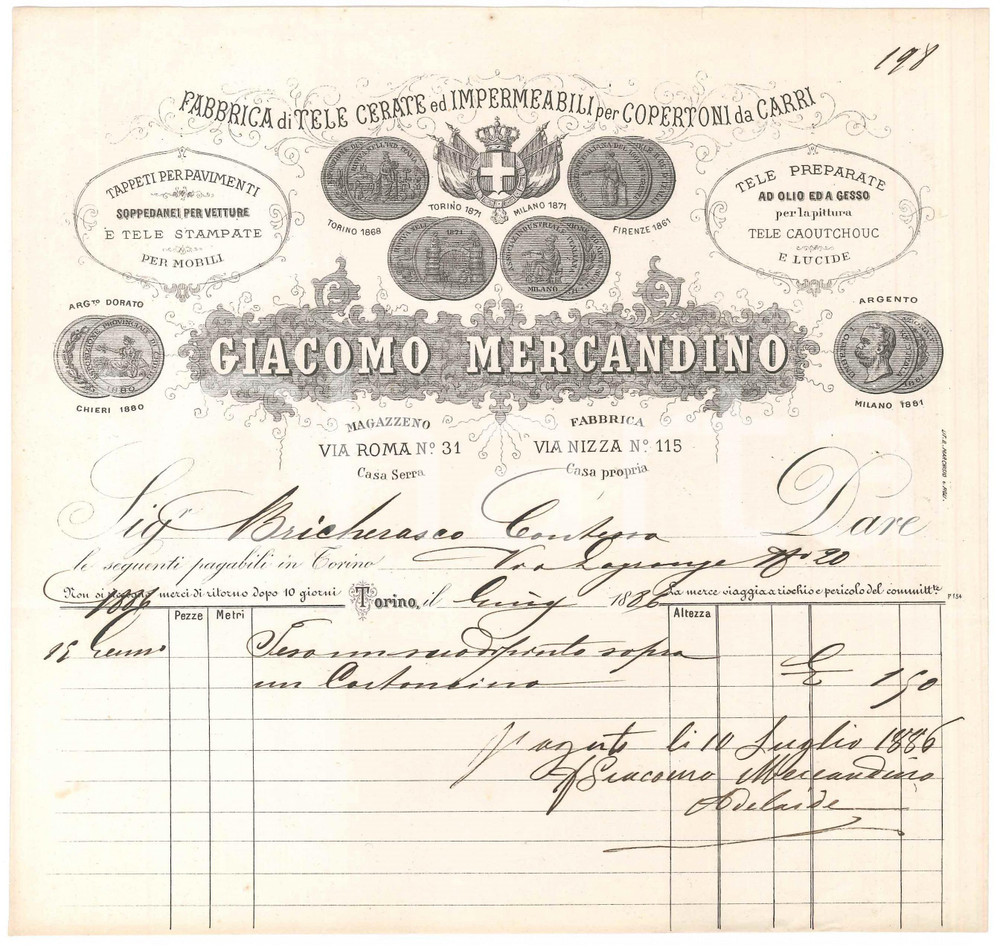 198
FABBRICA di TELE CERATE ed IMPERMEABILI per COPERTONI da CARRI
TAPPETI PER PAVIMENTI
SOPPEDANEI PER VETTURE
E TELE STAMPATE
PER MOBILI
TELE PREPARATE
AD OLIO ED A GESSO
per la pittura
TELE CAOUTCHOUC
E LUCIDE
TORINO 1868
TORINO 1871
MILANO 1871
FIRENZE 1861
1871
MILANO
ARG.TO DORATO
1880
CHIERI 1880
ARGENTO
UMBERTO I
1881
MILANO 1881
GIACOMO MERCANDINO
MAGAZZENO
VIA ROMA No. 31
Casa Serra
FABBRICA
VIA NIZZA No. 115
Casa propria
Sigr Bricherasco Contessa Dare
le seguenti pagabili in Torino Via Lagrange No 20
Non si accetta merci di ritorno dopo 10 giorni Torino, il Giug 1886 La merce viaggia a rischio e pericolo del committte P 154
1886
Pezze Metri Altezza
15 sopra
un £ 1 50
Pagato li 10 Luglio 1886
Giacomo Mercandino
Adelaide